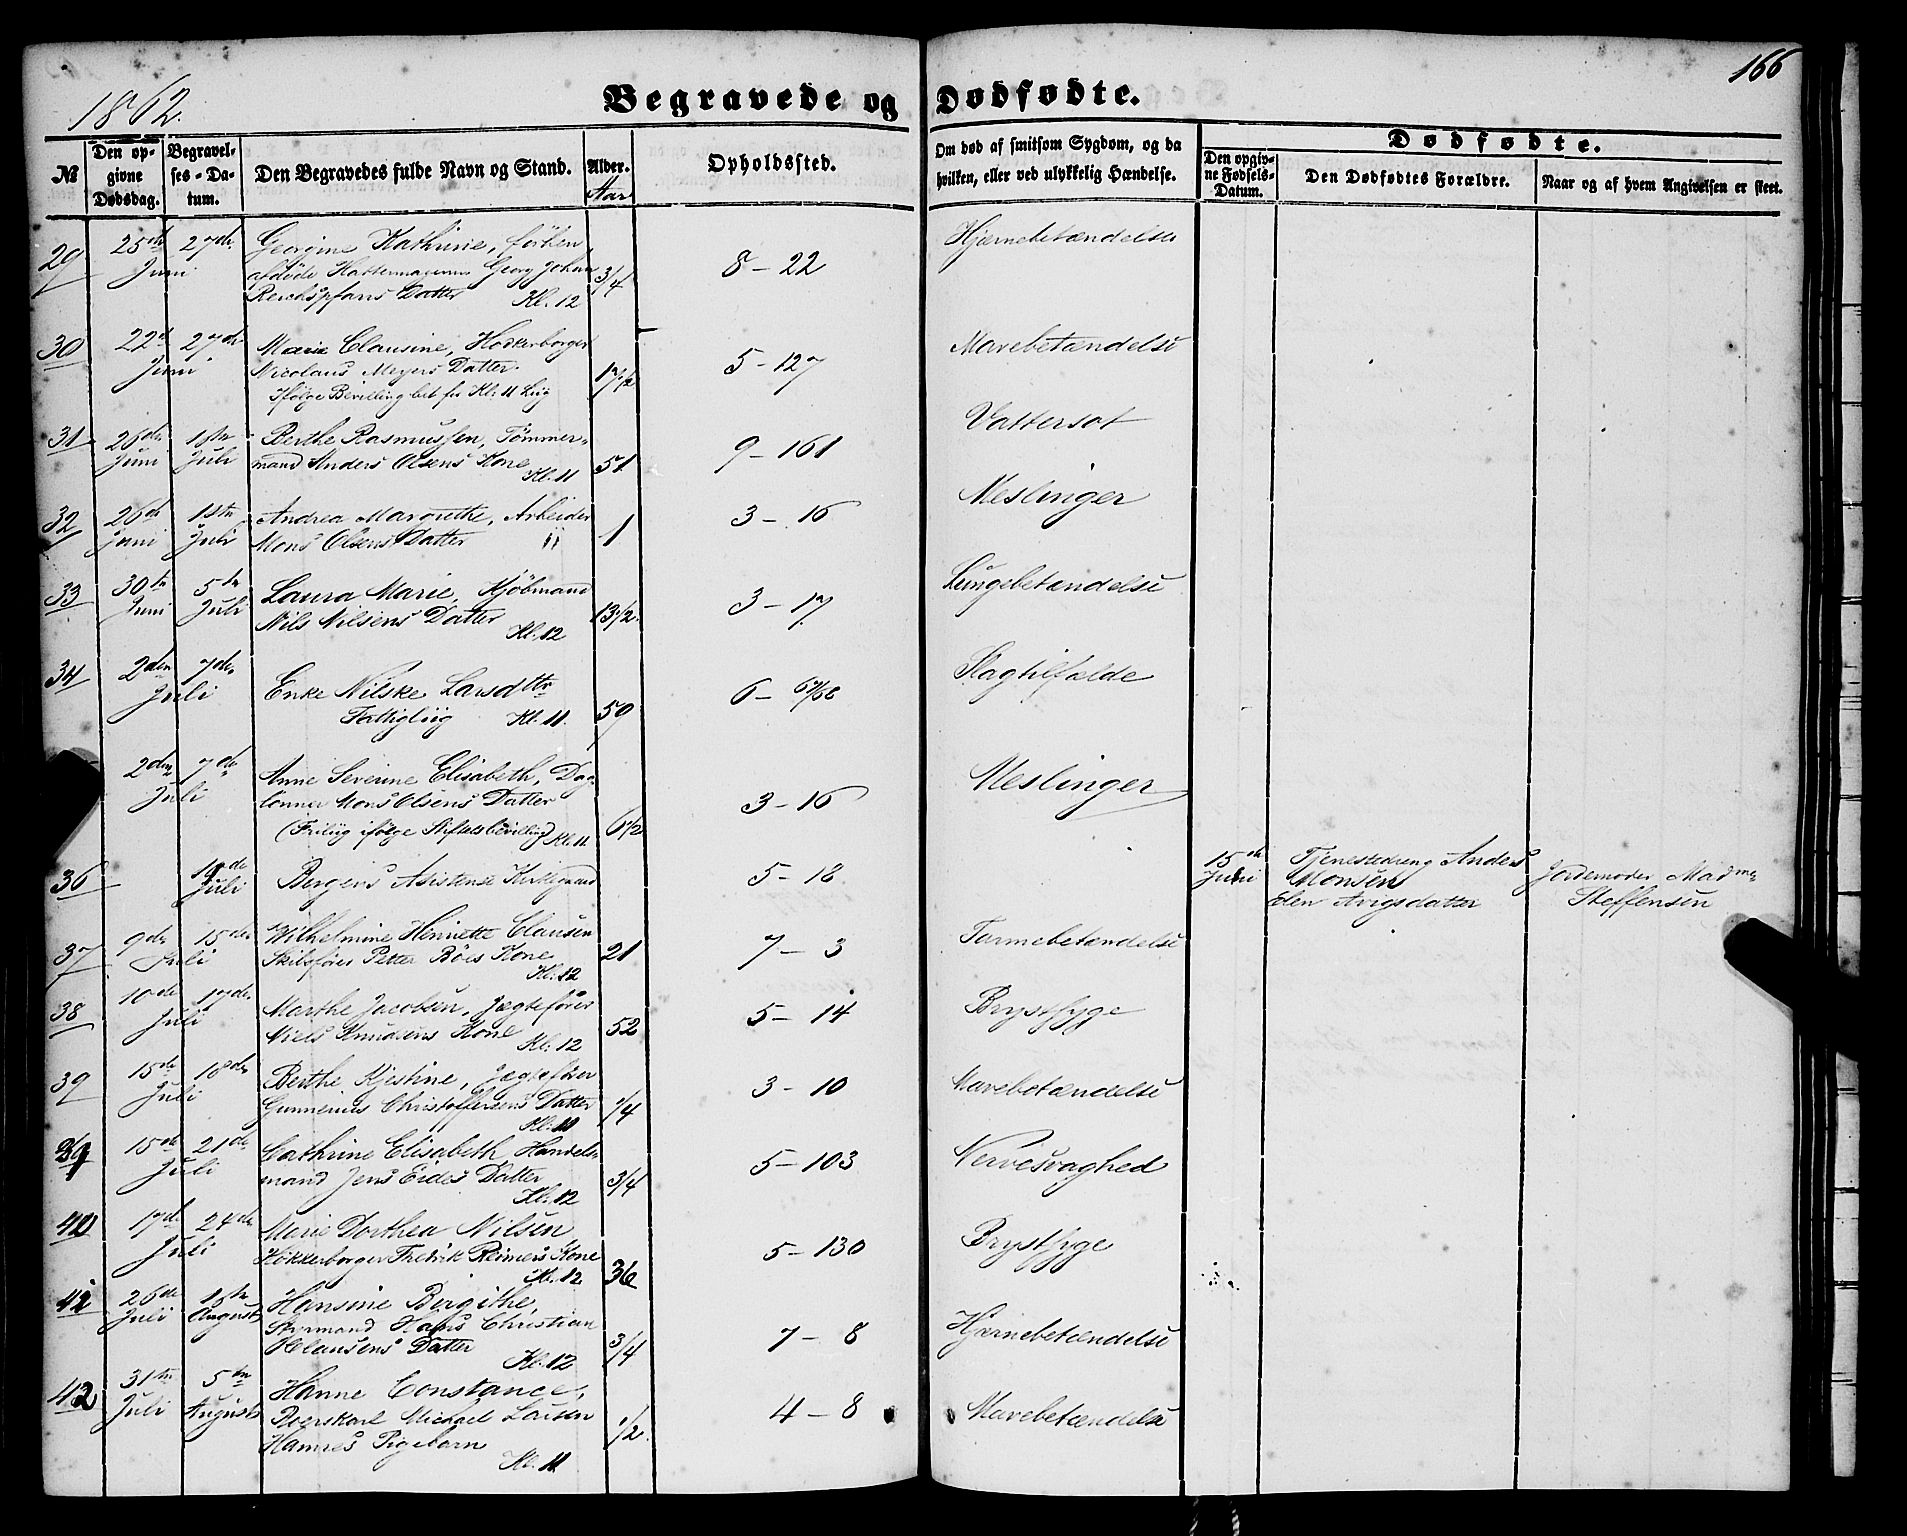 166
1862.
Begravede og Dødfødte.
№
Den opgivne Dødsdag.
Begravelses-Datum.
Den Begravedes fulde Navn og Stand.
Alder.
Aar
Opholdssted.
Om død af smitsom Sygdom, og da hvilken, eller ved ulykkelig Hændelse.
Dødfødte.
Den opgivne Fødsels-Datum.
Den Dødfødtes Forældre.
Naar og af hvem Angivelsen er skeet.
29 25de 27de Georgine Kathrine, forhen Hjernebetændelse
Juni afdöde Hattemagerens Georg Johan 3/4 8 - 22
Reichspfans Datter Kl. 12
30 22de 27de Marie Clausine, Høkkerborger Mavebetændelse
Juni Nicolaus Meyers Datter 17 1/2 5 - 127
Ifølge Bevilling bet for Kl: 11 Liig
31 26de 1ste Berthe Rasmussen, Tømmer- Vattersot
Juni Juli mand Anders Olsens Kone 51 9 - 161
Kl. 11
32 26de 1ste Andrea Margrethe, Arbeider Meslinger
Juni Juli Mons Olsens Datter 11 1 3 - 16
33 30te 5te Laura Marie, Kjöbmand Lungebetændelse
Juni Juli Nils Nilsens Datter 13 1/2 3 - 17
Kl. 12
34 2den 7de Enke Nilske Larsdttr Slagtilfælde
Juli Fattigliig Kl. 11. 59 6 - 67/68
2den 7de Anne Severine Elisabeth, Dag- Meslinger
Juli lönner Mons Olsens Datter 6 1/2 3 - 16
(Friliig ifølge Stiftsbevilling) Kl. 11
36 19de Juli Bergens Asistense Kirkegaard 5 - 18 15de Juli Tjenestedreng Anders Monsen Jordemoder Madme
Elen Arigsdatter Steffensen
37 9de 15de Wilhelmine Henriette Clausen Tarmebetændelse
Juli Skibsförer Petter Böes Kone 21 7 - 3
Kl. 12
38 10de 17de Marthe Jacobsen, Jægteförer Brystsyge
Juli Niels Knudsens Kone 52 5 - 14
Kl. 12
39 15de 18de Berthe Kjestine, Jægteförer Mavebetændelse
Juli Gunnerius Christoffersens Datter 1/4 3 - 10
Kl. 11
39 15de 21de Cathrine Elisabeth, Handels- Nervesvaghed
Juli mand Jens Eides Datter 3/4 5 - 103
Kl. 12
40 17de 24de Marie Dorthea Nilsen Brystsyge
Juli Høkkerborger Fredrik Reimers Kone 36 5 - 130
Kl. 12
41 26de 1ste Hansine Birgithe, Hjernebetændelse
Juli August Styrmand Hans Christian 3/4 7 - 8
Clausens Datter Kl. 12
42 31te 5te Hanne Constance, Mavebetændelse
Juli August Roerskarl Michael Larsen 1/2 4 - 8
Hamres Pigebarn
Kl. 11